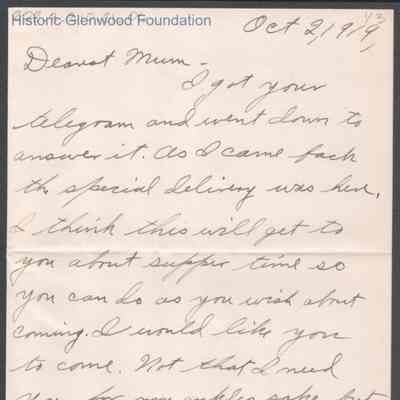 Historic Glenwood Foundation
Oct 2, 1919,
Dearest Mum -
I got your
telegram and went down to
answer it. As I came back
the special delivery was here.
I think this will get to
you about supper time so
you can do as you wish about
coming. I would like you
to come. Not that I need
you for my ankles sake, but